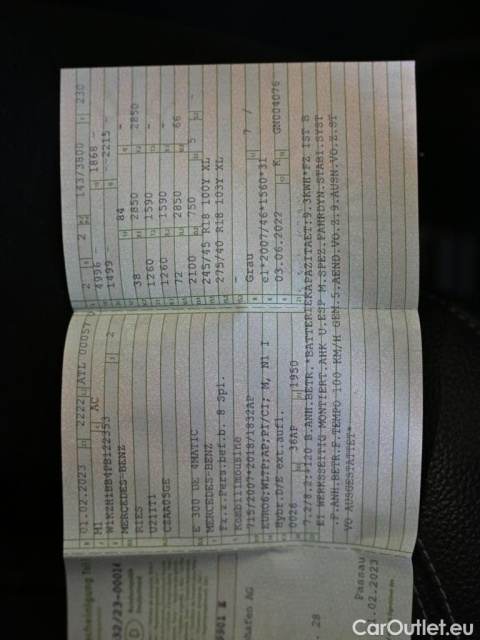 01.02.2023 2222 ATL 00057
M1 AC
W1K2H1BB4PB122353
2
MERCEDES-BENZ
R1ES
UZ11T1
CZAA05GE
E 300 DE 4MATIC
MERCEDES-BENZ
Fz.z.Pers.bef.b. 8 Spl.
Kombilimousine
715/2007*2018/1832AP
EURO6;WLTP;AP;PI/CI; M, N1 I
Hybr.D/E ext.aufl.
0026 36AP 1950
2 2 143/3800 230
4996 - 1868 -
1499 - --2215--
84 -
38 2850 2850
1260 1590 -
1260 1590 -
72 2850 66
2100 750 5 -
245/45 R18 100Y XL
275/40 R18 103Y XL
-
Grau 7 /
e1*2007/46*1560*31
03.06.2022 K GN004076
7.2/8.2:+120 B.ANH.BETR.*BATTERIEKAPAZITAET:9.3KWH*FZ IST B
EI WERKSSEITIG MONTIERT.AHK U.ESP M.SPEZ.FAHRDYN.STABI.SYST
.F.ANH.BETR.F.TEMPO 100 KM/H GEM.5.AEND.VO.Z.9.AUSN.VO.Z.ST
VO AUSGESTATTET*
D
hafen AG
28
Passau
.02.2023
CarOutlet.eu